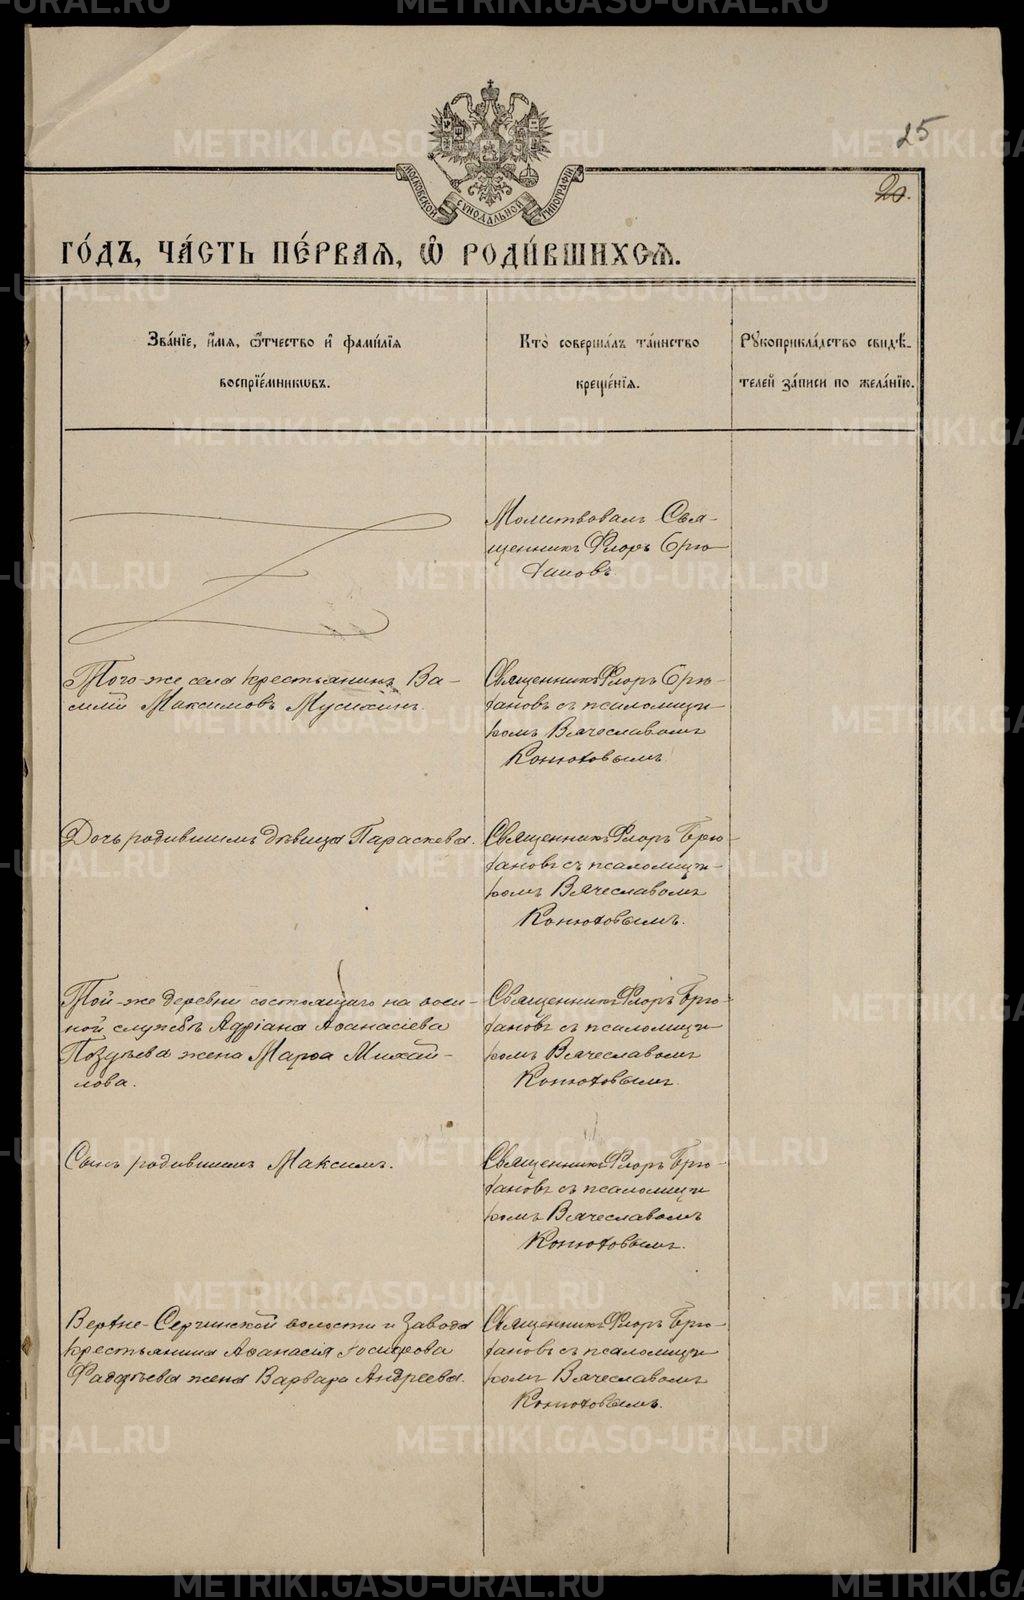 25
20.
МОСКОВСКОЙ СѴНОДАЛЬНОЙ ТИПОГРАФІИ
ГО́ДЪ, ЧА́СТЬ ПЕ́РВАѦ, Ѽ РОДИ́ВШИХСѦ.
Зва́нїе, и҆́мѧ, ѻ҆́тчество и҆ фами́лїѧ
воспрїе́мникѡвъ.
Кто̀ соверша́лъ та́инство
креще́нїѧ.
Рꙋкоприкла́дство свидѣ́-
телей за́писи по жела́нїю.
Молитвовалъ Свя-
щенникъ Флоръ Брю
хановъ
Того-же села крестьянинъ Ва-
силій Максимовъ Мусихинъ.
Священникъ Флоръ Брю-
хановъ съ псаломщи
комъ Вячеславомъ
Конюховымъ
Дочь родившимъ дѣвица Параскева.
Священникъ Флоръ Брю-
хановъ съ псаломщи-
комъ Вячеславомъ
Конюховымъ.
Той-же деревни состоящаго на воен-
ной службѣ Адріана Аѳанасіева
Поздѣева жена Марѳа Михай-
лова.
Священникъ Флоръ Брю-
хановъ съ псаломщи
комъ Вячеславомъ
Конюховымъ.
Сынъ родившимъ Максимъ.
Священникъ Флоръ Брю-
хановъ съ псаломщи
комъ Вячеславомъ
Конюховымъ.
Верхне-Сергинской волости и Завода
крестьянина Аѳанасія Іосифова
жена Варвара Андреева.
Священникъ Флоръ Брю-
хановъ съ псаломщи
комъ Вячеславомъ
Конюховымъ.
METRIKI.GASO-URAL.RU